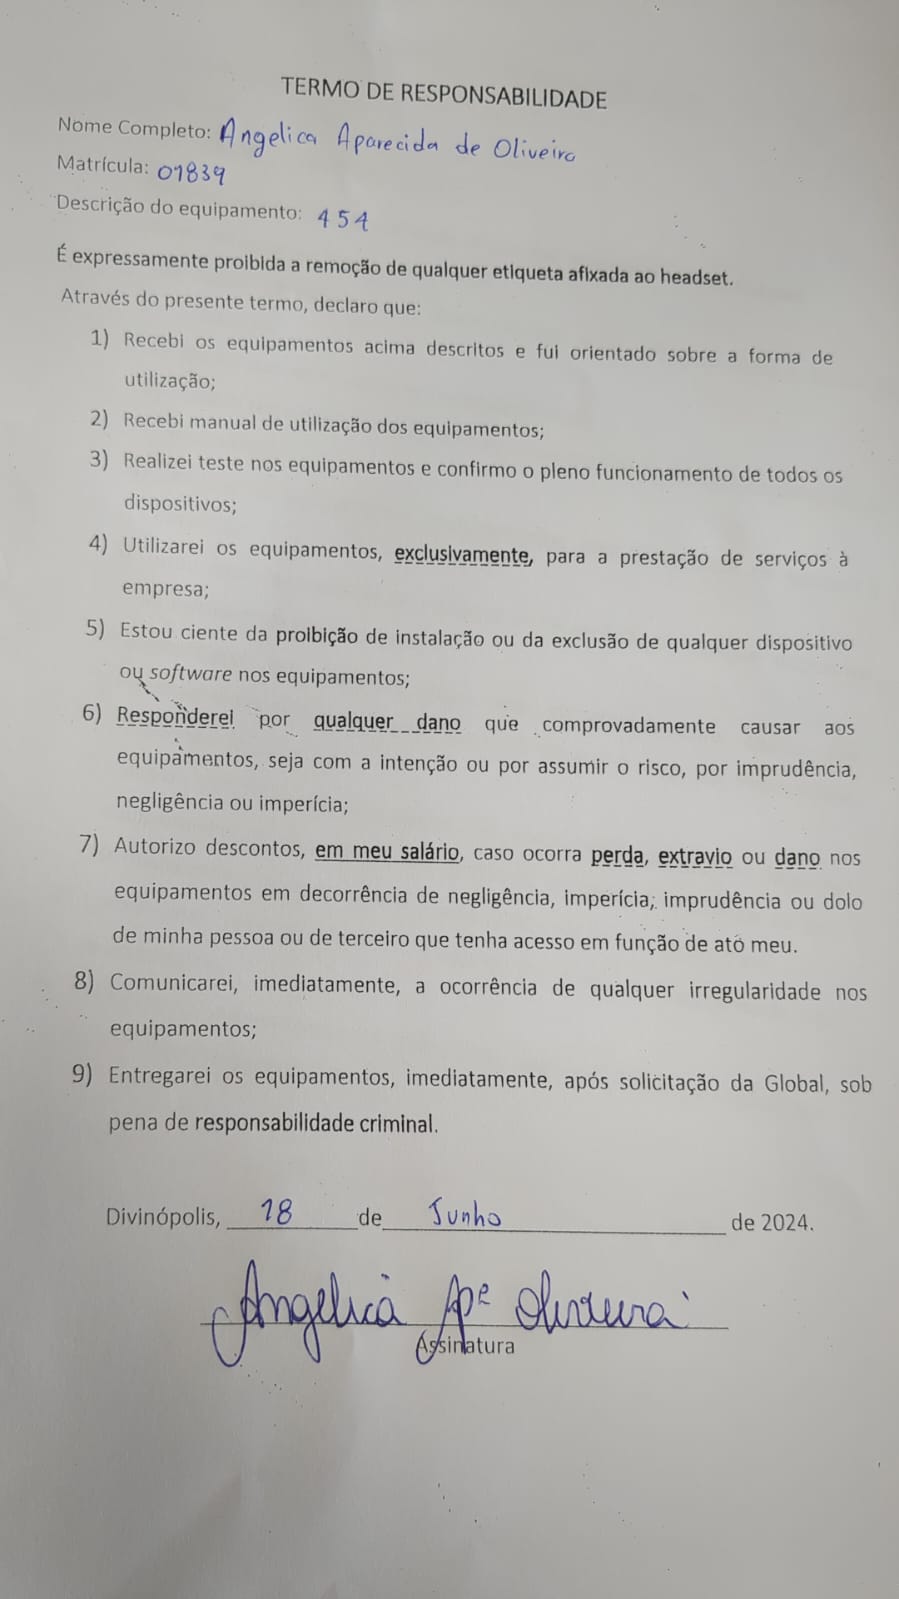 TERMO DE RESPONSABILIDADE
Nome Completo: Angelica Aparecida de Oliveira
Matrícula: 01839
Descrição do equipamento: 454
É expressamente proibida a remoção de qualquer etiqueta afixada ao headset.
Através do presente termo, declaro que:
1) Recebi os equipamentos acima descritos e fui orientado sobre a forma de
utilização;
2) Recebi manual de utilização dos equipamentos;
3) Realizei teste nos equipamentos e confirmo o pleno funcionamento de todos os
dispositivos;
4) Utilizarei os equipamentos, exclusivamente, para a prestação de serviços à
empresa;
5) Estou ciente da proibição de instalação ou da exclusão de qualquer dispositivo
ou software nos equipamentos;
6) Responderei por qualquer dano que comprovadamente causar aos
equipamentos, seja com a intenção ou por assumir o risco, por imprudência,
negligência ou imperícia;
7) Autorizo descontos, em meu salário, caso ocorra perda, extravio ou dano nos
equipamentos em decorrência de negligência, imperícia, imprudência ou dolo
de minha pessoa ou de terceiro que tenha acesso em função de ato meu.
8) Comunicarei, imediatamente, a ocorrência de qualquer irregularidade nos
equipamentos;
9) Entregarei os equipamentos, imediatamente, após solicitação da Global, sob
pena de responsabilidade criminal.
Divinópolis, 18 de Junho de 2024.
Angelica Apª Oliveira
Assinatura